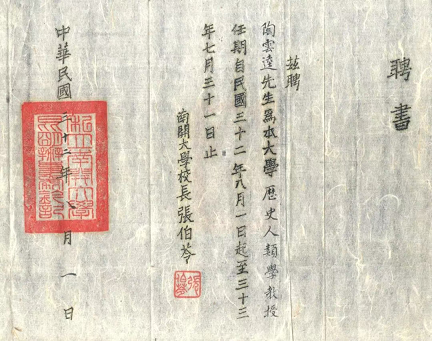 聘書
茲聘
陶雲逵先生為本大學歷史人類學教授
任期自民國三十二年八月一日起至三十三
年七月三十一日止
南開大學校長張伯苓
中華民國三十二年 月一日